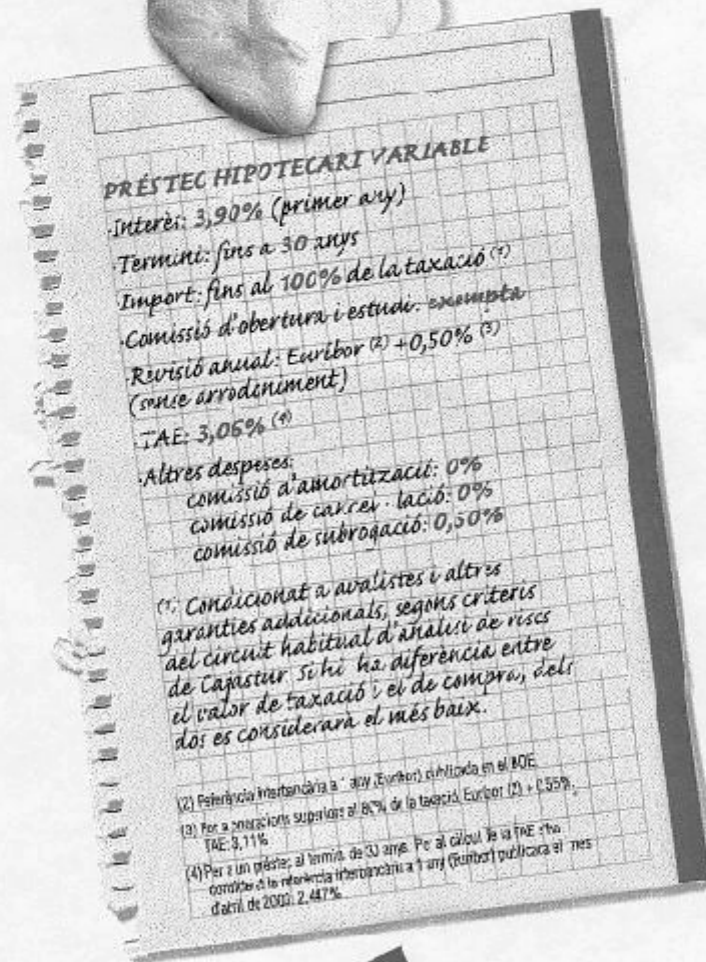 PRÉSTEC HIPOTECARI VARIABLE
·Interès: 3,90% (primer any)
·Termini: fins a 30 anys
Import: fins al 100% de la taxació (1)
·Comissió d'obertura i estudi: exempta
·Revisió anual: Euríbor (2) +0,50% (3)
(sense arrodoniment)
·TAE: 3,06% (4)
·Altres despeses:
comissió d'amortització: 0%
comissió de cancel·lació: 0%
comissió de subrogació: 0,50%
(1) Condicionat a avalistes i altres
garanties addicionals, segons criteris
del circuit habitual d'anàlisi de riscs
de Cajastur. Si hi ha diferència entre
el valor de taxació i el de compra, dels
dos es considerarà el més baix.
(2) Referència interbancària a 1 any (Euríbor) publicada en el BOE.
(3) Per a operacions superiors al 80% de la taxació, Euríbor (2) + 0,55%,
TAE: 3,11%
(4) Per a un préstec al termini de 30 anys. Per al càlcul de la TAE s'ha
considerat la referència interbancària a 1 any (Euríbor) publicara el mes
d'abril de 2003: 2,447%